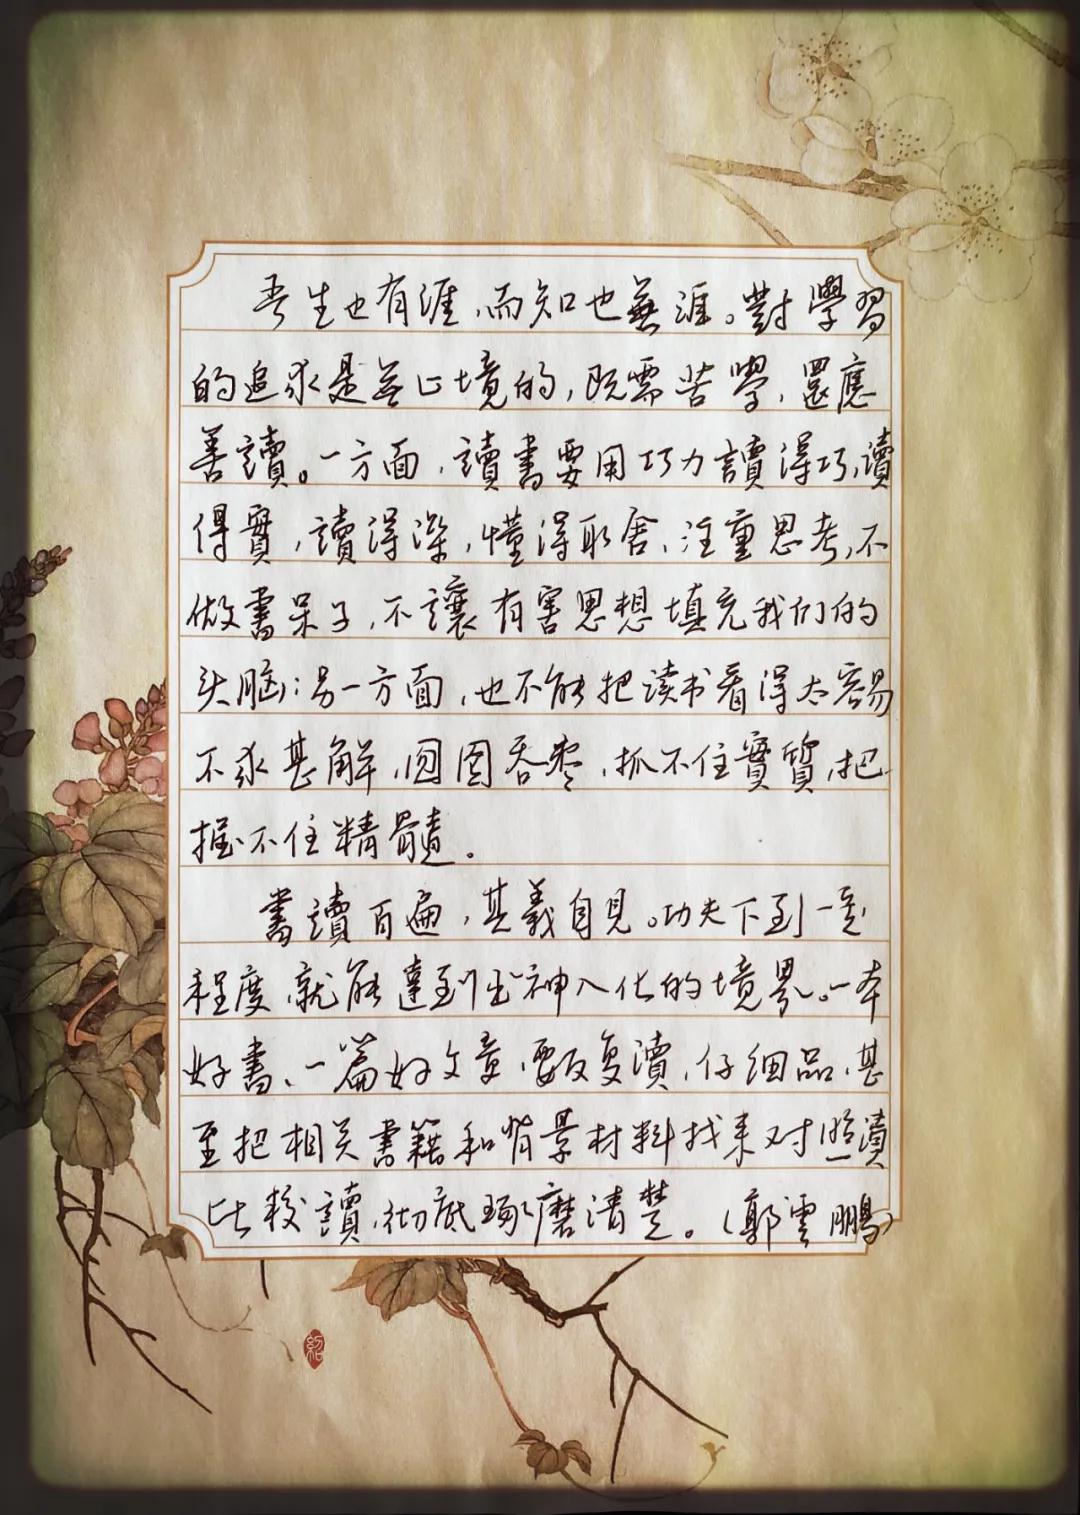 吾生也有涯,而知也無涯。對學習
的追求是无止境的,既需苦學,還應
善讀。一方面,讀書要用巧力,讀得巧,讀
得實,讀得深,懂得取舍,注重思考,不
做書呆子,不讓有害思想填充我们的
头脑;另一方面,也不能把读书看得太容易
不求甚解,囫囵吞枣,抓不住實質,把
握不住精髓。
書讀百遍,其義自見。功夫下到一定
程度,就能達到出神入化的境界。一本
好書、一篇好文章,要反复讀,仔细品,甚
至把相关書籍和背景材料找来对照讀
比较讀,彻底琢磨清楚。(郭雲鵬)